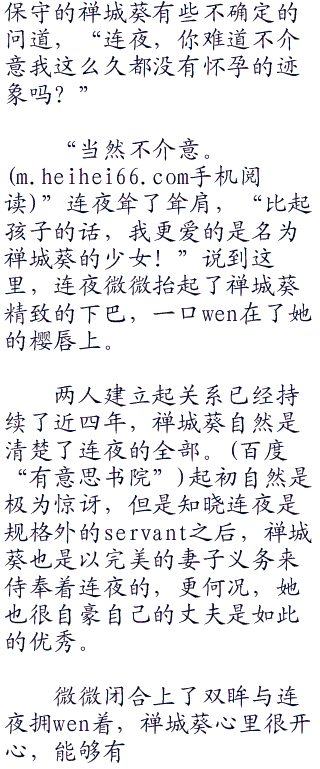 保守的禅城葵有些不确定的
问道，“连夜，你难道不介
意我这么久都没有怀孕的迹
象吗？”
“当然不介意。
(m.heihei66.com手机阅
读)”连夜耸了耸肩，“比起
孩子的话，我更爱的是名为
禅城葵的少女！”说到这
里，连夜微微抬起了禅城葵
精致的下巴，一口wen在了她
的樱唇上。
两人建立起关系已经持
续了近四年，禅城葵自然是
清楚了连夜的全部。(百度
“有意思书院”)起初自然是
极为惊讶，但是知晓连夜是
规格外的servant之后，禅城
葵也是以完美的妻子义务来
侍奉着连夜的，更何况，她
也很自豪自己的丈夫是如此
的优秀。
微微闭合上了双眸与连
夜拥wen着，禅城葵心里很开
心，能够有